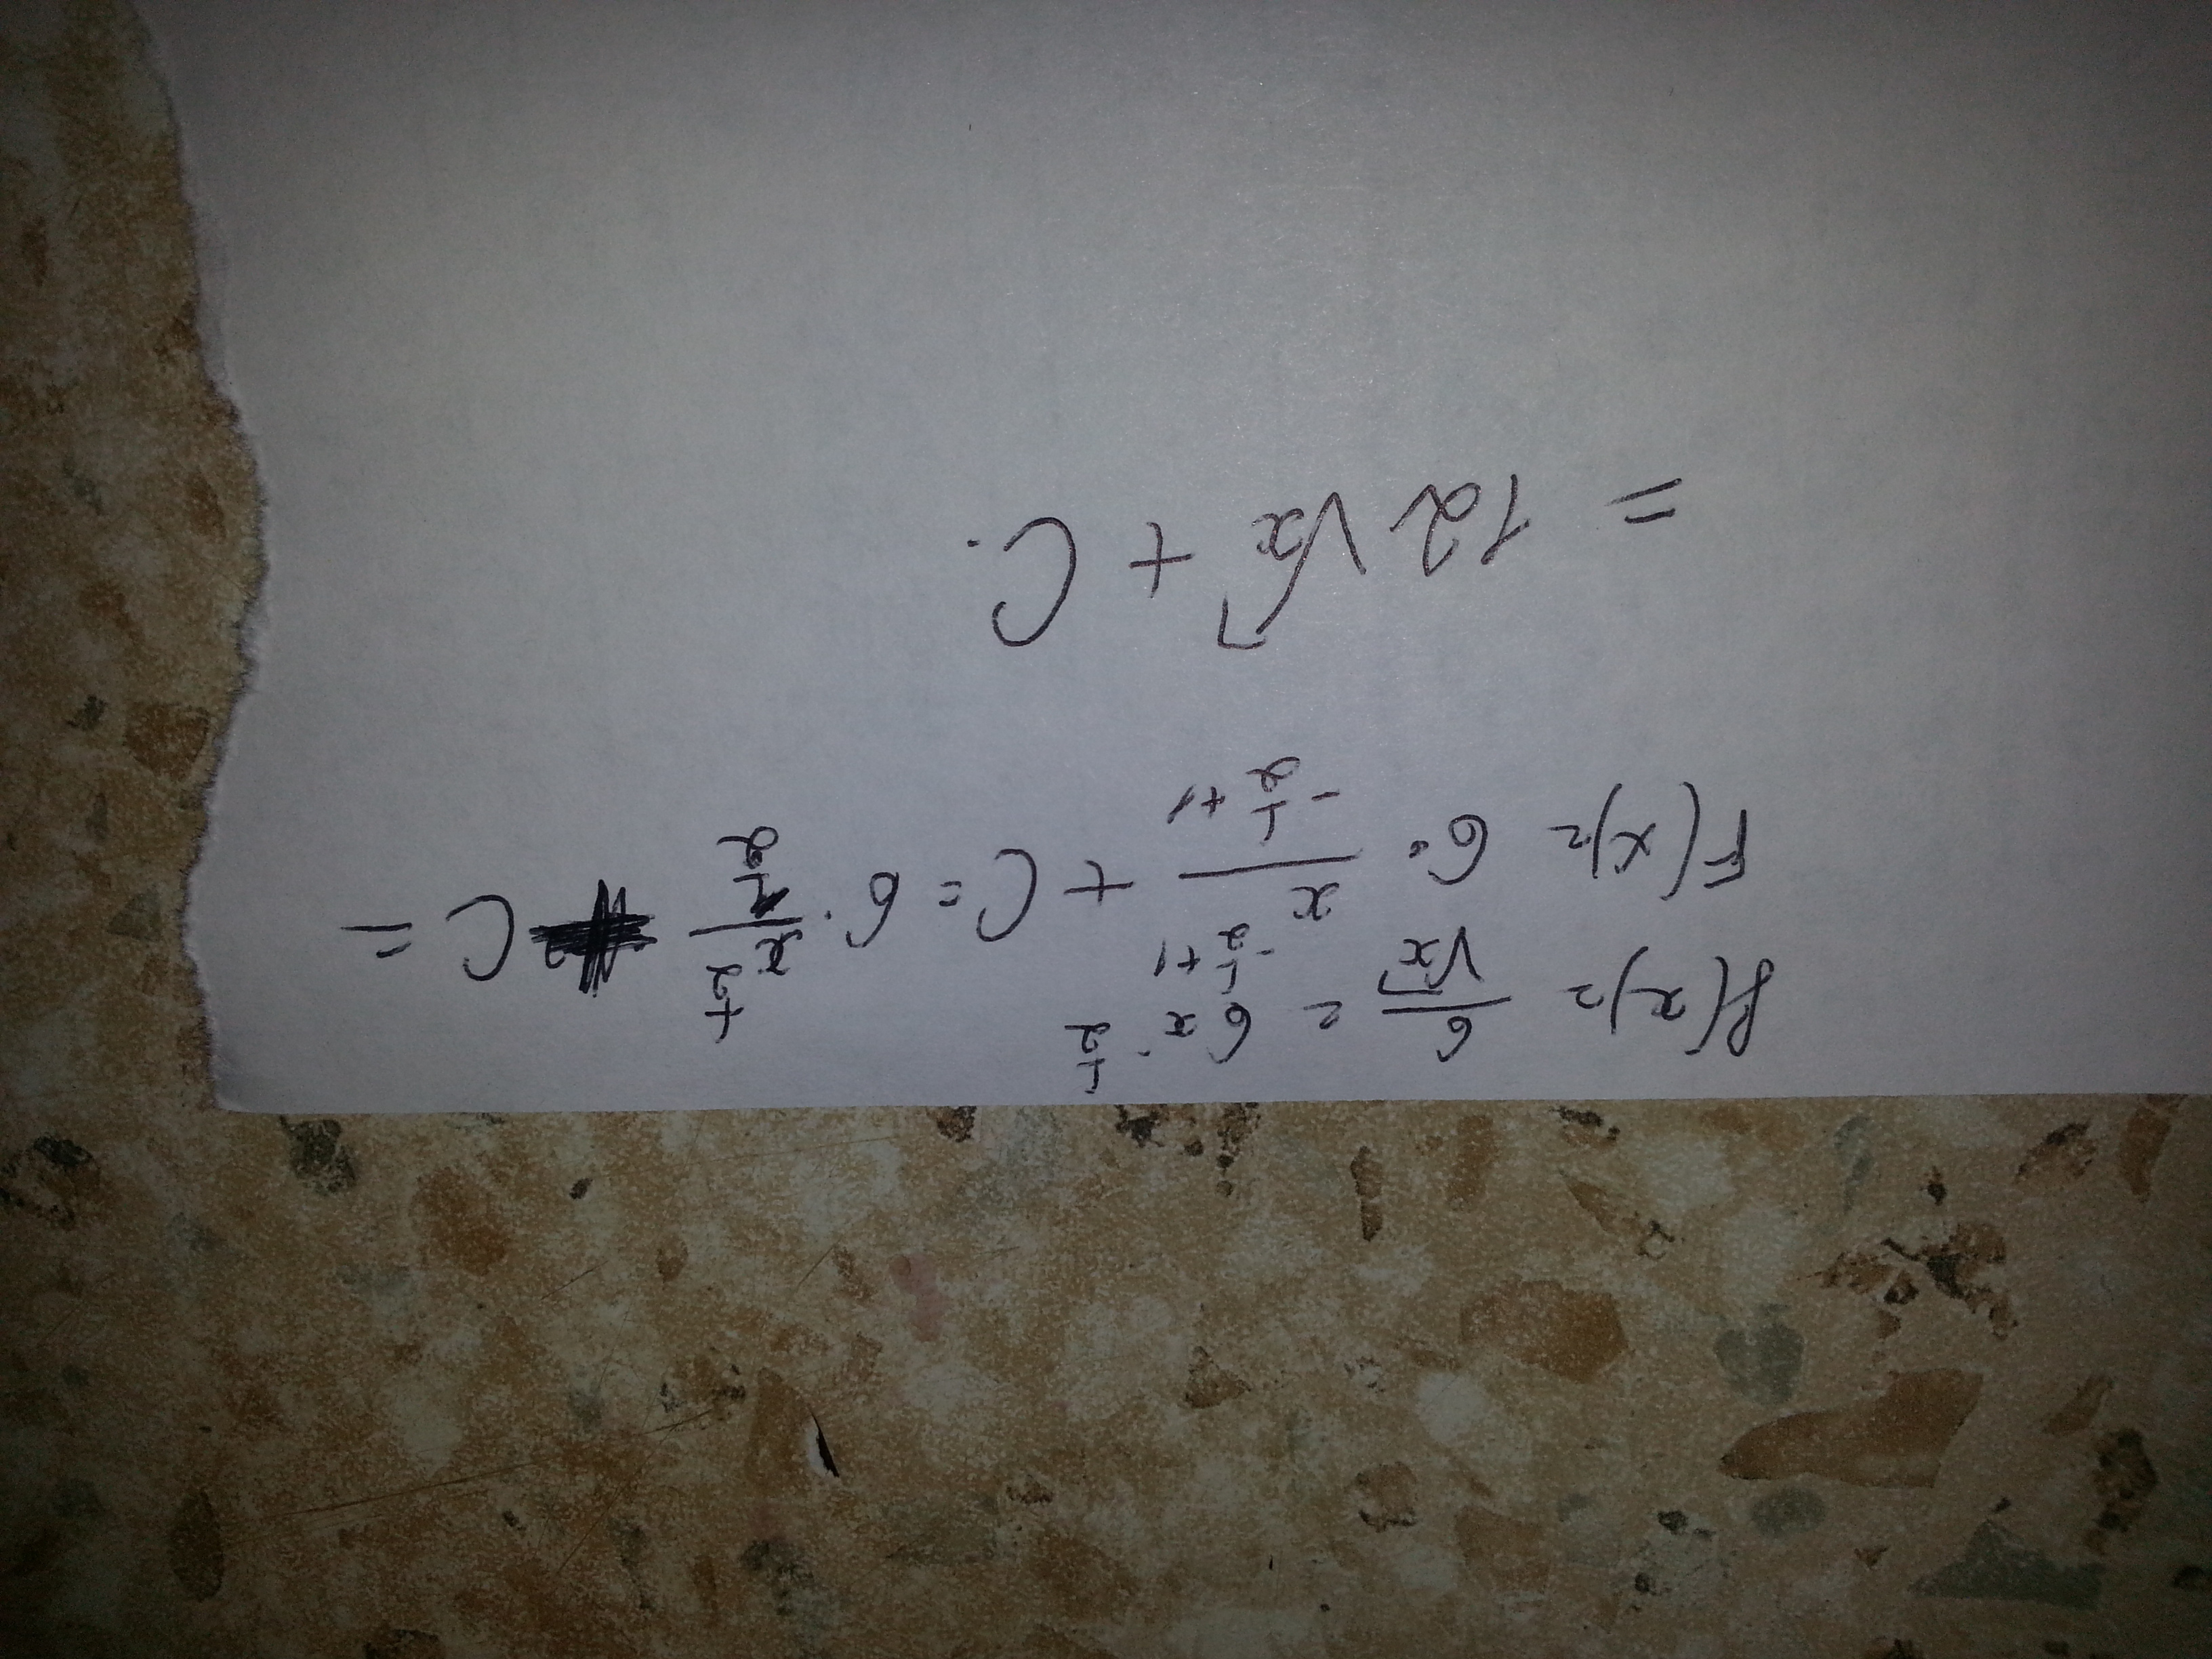 f(x) = 6/√x = 6x^(-1/2)
F(x) = 6 · x^(-1/2+1)/(-1/2+1) + C = 6 · x^(1/2)/(1/2) + C =
= 12√x + C.